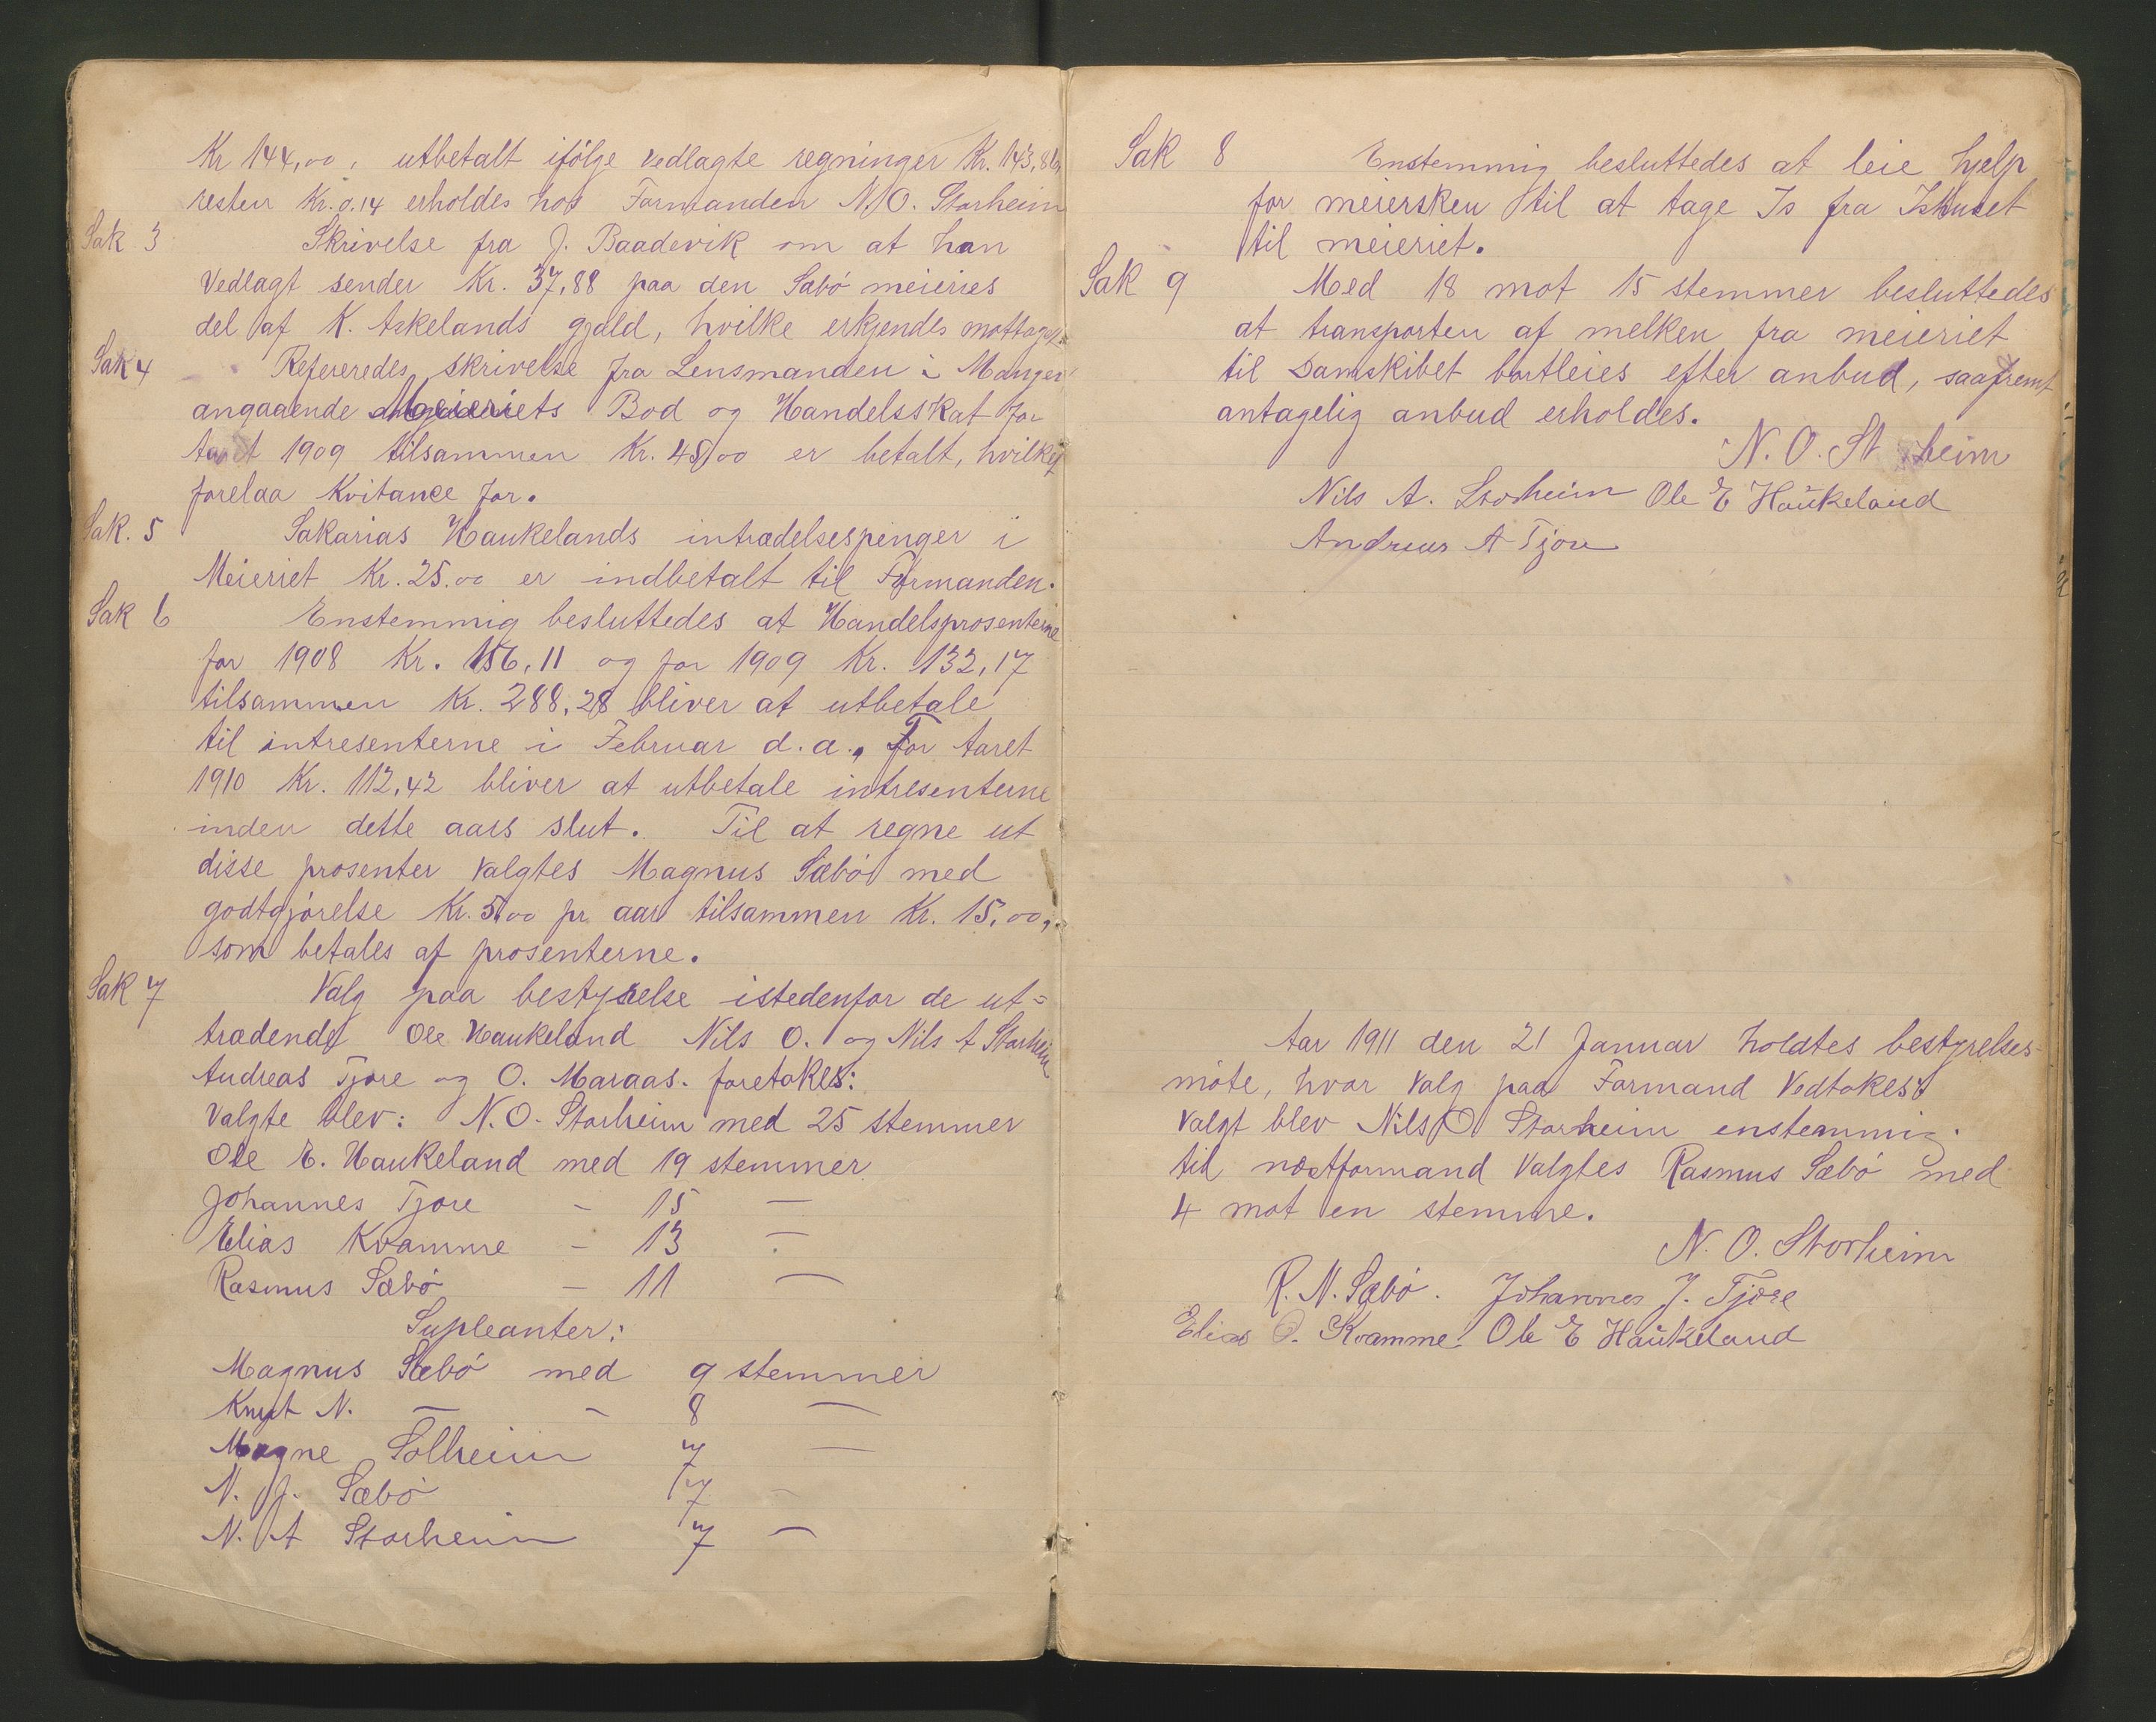 Kr 144,00, utbetalt ifölge vedlagte regninger Kr. 143,86,
resten Kr. 0.14 erholdes hos Formanden N. O. Storheim
Sak 3 Skrivelse fra J. Baadevik om at han
Vedlagt sender Kr. 37,88 paa den Sæbö meieries
del af K. Askelands gjæld, hvilke erkjendes mottaget.
Sak 4 Refereredes skrivelse fra Lensmanden i Manger
angaaende Meieriets Bod og Handelsskat for
Aaret 1909 tilsammen Kr. 48,00 er betalt, hvilket
forelaa Kvitance for.
Sak. 5 Sakarias Haukelands intrædelsespenger i
Meieriet Kr. 25.00 er indbetalt til Formanden.
Sak 6 Enstemmig besluttedes at Handelsprosenterne
for 1908 Kr. 156,11 og for 1909 Kr. 132,17
tilsammen Kr. 288,28 bliver at utbetale
til intresenterne i Februar d. a., For Aaret
1910 Kr. 112,42 bliver at utbetale intresenterne
inden dette aars slut. Til at regne ut
disse prosenter Valgtes Magnus Sæbö med
godtgjörelse Kr. 5,00 pr aar tilsammen Kr. 15,00,
som betales af prosenterne.
Sak 7 Valg paa bestyrelse istedenfor de ut-
trædende Ole Haukeland Nils O. og Nils A Storheim
Andreas Tjore og O. Maraas. foretokes:
Valgte blev: N. O. Storheim med 25 stemmer
Ole E. Haukeland med 19 stemmer
Johannes Tjore - 15 —
Elias Kvamme - 13 —
Rasmus Sæbö — 11 —
Supleanter:
Magnus Sæbö med 9 stemmer
Knut N. — - 8 —
Magne Solheim 7 —
N. J. Sæbö 7 -
N. A Storheim 7 —
Sak 8 Enstemmig besluttedes at leie hjelp
for meiersken til at tage Is fra Ishuset
til meieriet.
Sak 9 Med 18 mot 15 stemmer besluttedes
at transporten af melken fra meieriet
til Damskibet bortleies efter anbud, saafremt
antagelig anbud erholdes.
N. O. St heim
Nils A. Storheim Ole E Haukeland
Andreas A Tjore
Aar 1911 den 21 Januar holdtes bestyrelses-
möte, hvor Valg paa Formand Vedtokes.
Valgt blev Nils O Storheim enstemmig.
til næstformand Valgtes Rasmus Sæbö med
4 mot en stemme.
N. O. Storheim
R. N. Sæbö. Johannes J. Tjore
Elias O. Kvamme Ole E Haukeland